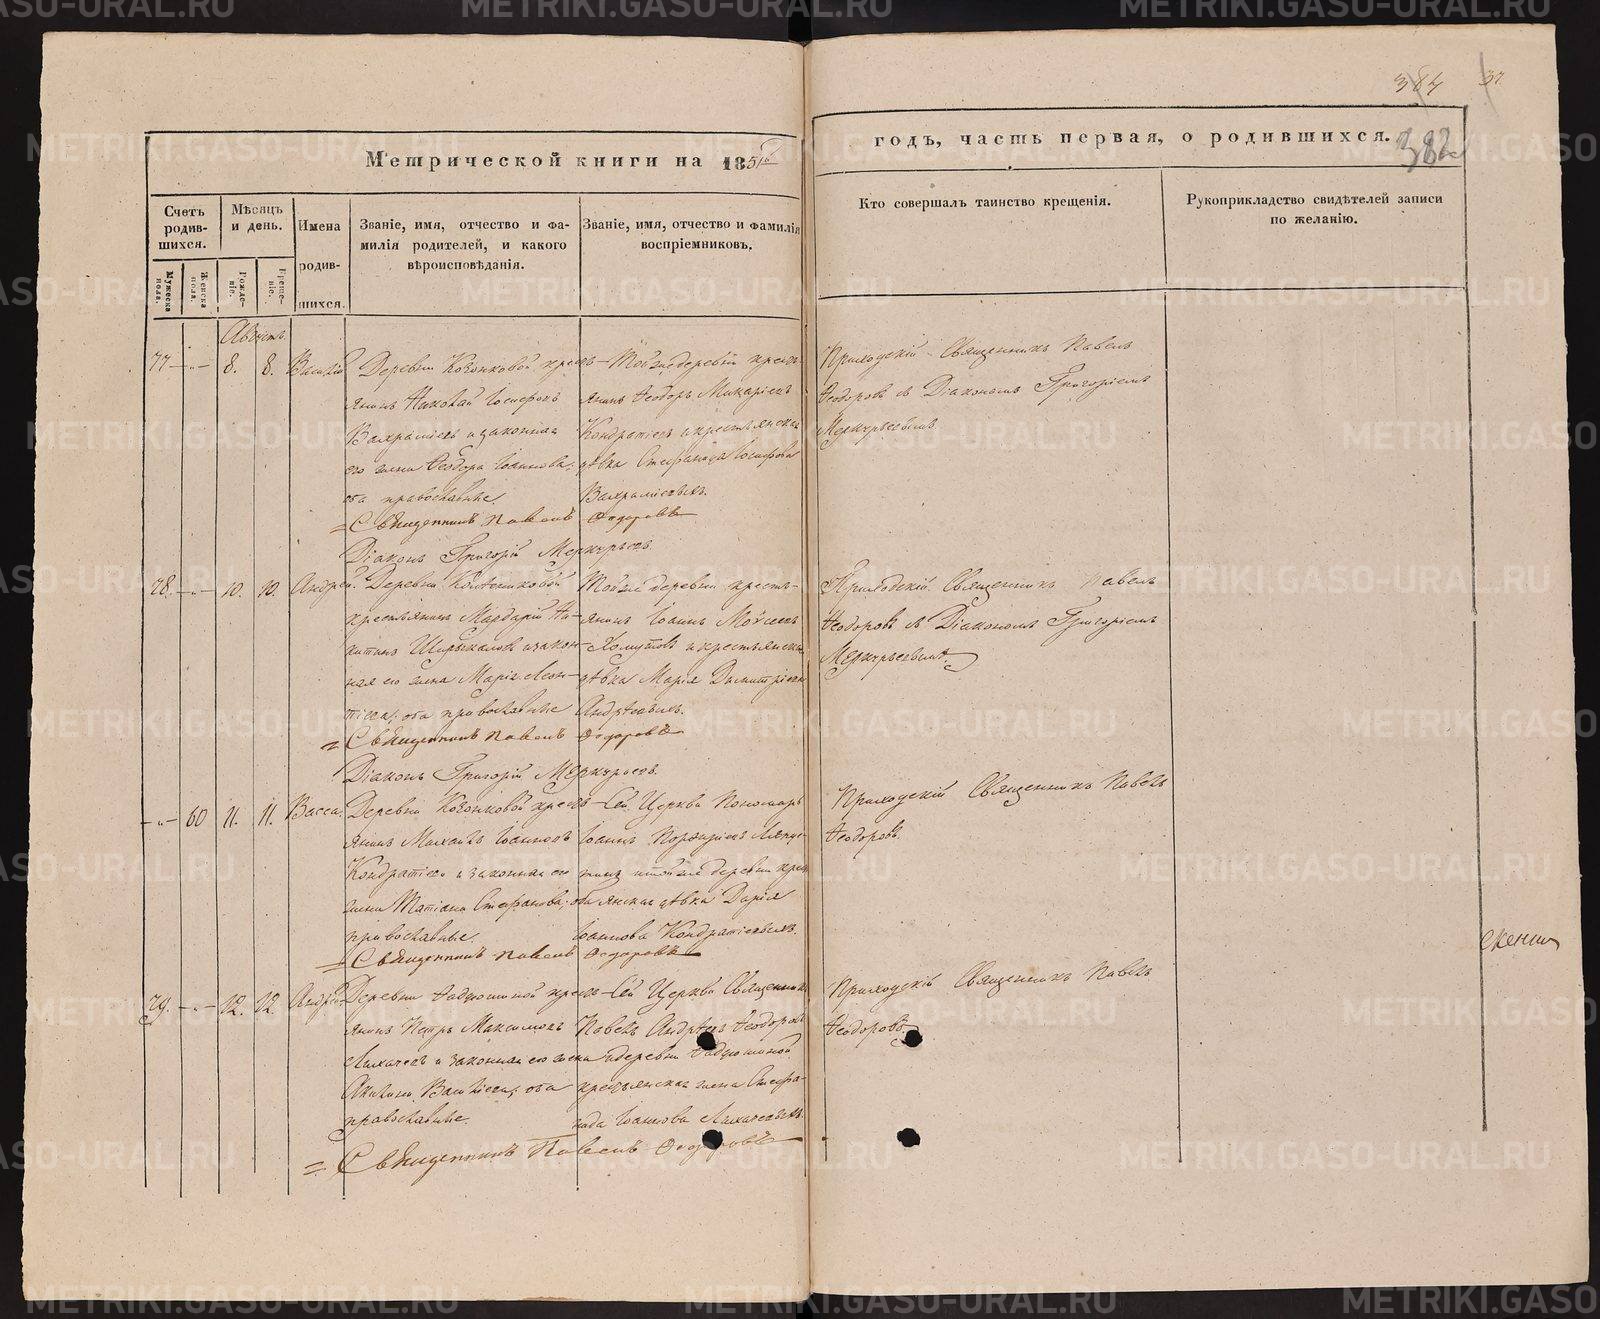 384 37
382
Метрической книги на 1851й
годъ, часть первая, о родившихся.
Счетъ родив-шихся.
Мужеска пола.
Женска пола.
Мѣсяцъ и день.
Рожде-ніе.
Креще-ніе.
Имена родив-шихся.
Званіе, имя, отчество и фа-
милія родителей, и какого
вѣроисповѣданія.
Званіе, имя, отчество и фамилія
воспріемниковъ.
Кто совершалъ таинство крещенія.
Рукоприкладство свидѣтелей записи
по желанію.
Августъ.
77 — „ — 8. 8. Василій
Деревни Кочонковой кресть-
янинъ Николай Іосифовъ
Вахрамѣевъ и законная
его жена Ѳеодора Іоаннова;
оба православные
Той же деревни кресть-
янинъ Ѳеодоръ Макаріевъ
Кондратіевъ и крестьянская
дѣвка Стефанида Іосифова
Вахрамѣевыхъ.
Приходскій Священникъ Павелъ
Ѳеодоровъ съ Діакономъ Григоріемъ
Меркурьевымъ
Священникъ Павелъ Ѳеодоровъ
Діаконъ Григорій Меркурьевъ.
78. — „ — 10. 10. Андрей.
Деревни
крестьянинъ Мардарій Ни-
китинъ и закон-
ная его жена Марія Леон-
тіева; оба православные
Той же деревни кресть-
янинъ Іоаннъ Моѵсеевъ
Хомутовъ и крестьянская
дѣвка Марія Димитріева
Андрѣевыхъ.
Приходскій Священникъ Павелъ
Ѳеодоровъ съ Діакономъ Григоріемъ
Меркурьевымъ.
Священникъ Павелъ Ѳеодоровъ
Діаконъ Григорій Меркурьевъ.
— „ — 60 11. 11. Васса.
Деревни Кочонковой кресть-
янинъ Михаилъ Іоанновъ
Кондратіевъ и законная его
жена Татіана Стефанова; оба
православные.
Сей Церкви Пономарь
Іоаннъ
и той же деревни крес-
янская дѣвка Дарія
Іоаннова Кондратіевыхъ.
Приходскій Священникъ Павелъ
Ѳеодоровъ.
Священникъ Павелъ Ѳеодоровъ
79. — „ — 12. 12. Андрей.
Деревни Фадюшиной кресть-
янинъ Петръ Максимовъ
Лихачевъ и законная его жена
Акилина Васильева; оба
православные.
Сей Церкви Священникъ
Павелъ Андрѣевъ Ѳеодоровъ
и деревни Фадюшиной
крестьянская жена Стефа-
нида Іоаннова Лихачевыхъ.
Приходскій Священникъ Павелъ
Ѳеодоровъ
Священникъ Павелъ Ѳеодоровъ
METRIKI.GASO-URAL.RU